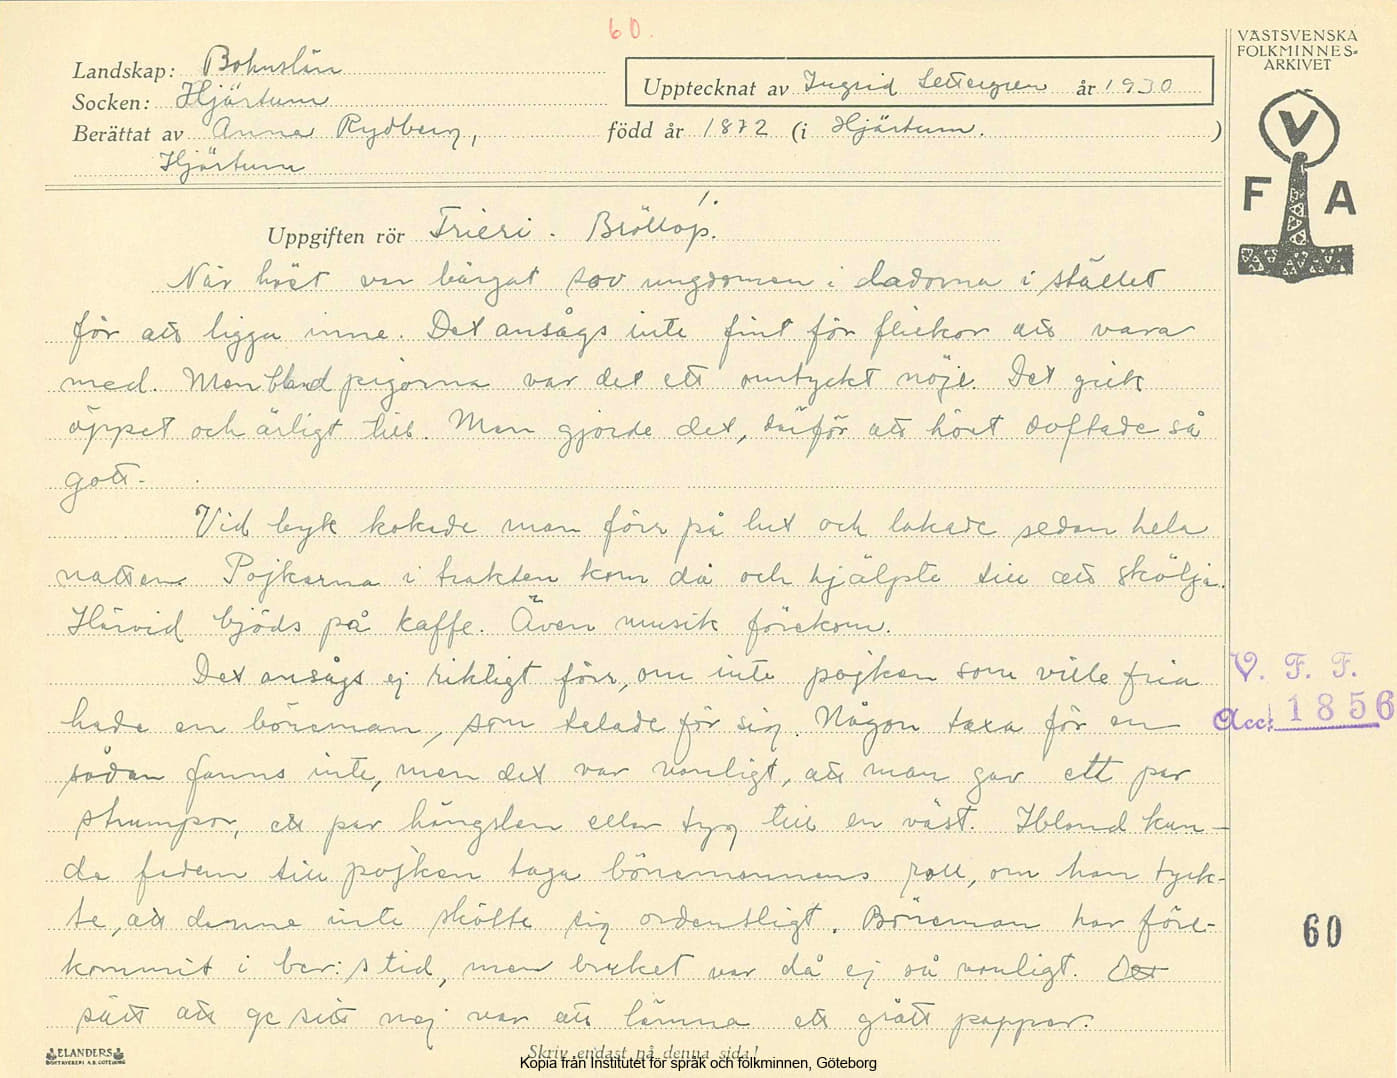 60.
VÄSTSVENSKA
FOLKMINNES-
ARKIVET
Landskap: Bohuslän
Socken: Hjärtum
Upptecknat av Ingrid Settergren år 1930
Berättat av Anna Rydberg, född år 1872 (i Hjärtum.)
Hjärtum
V
F A
1.
Uppgiften rör Frieri. Bröllop.
När höst var bärgat sov ungdomen i ladorna i stället
för att ligga inne. Det ansågs inte fint för flickor att vara
med. Men bland pigorna var det ett omtyckt nöje. Det gick
öppet och ärligt till. Man gjorde det, därför att höet doftade så
gott.
Vid byk kokade man förr på lut och lakade sedan hela
natten. Pojkarna i trakten kom då och hjälpte till att skölja.
Härvid bjöds på kaffe. Även musik förekom.
Det ansågs ej riktigt förr, om inte pojken som ville fria
hade en böneman, som talade för sig. Någon taxa för en
sådan fanns inte, men det var vanligt, att man gav ett par
strumpor, ett par hängslen eller tyg till en väst. Ibland kun-
de fadern till pojken taga bönemannens roll, om han tyck-
te, att denne inte skötte sig ordentligt. Böneman har före-
kommit i ber:s tid, men bruket var då ej så vanligt. Det
sätt att ge sitt nej var att lämna ett grått papper.
V. F. F.
Acc: 1856
60
ELANDERS
BOKTRYCKERI A.B. GÖTEBORG
Skriv endast på denna sida!
Kopia från Institutet för språk och folkminnen, Göteborg